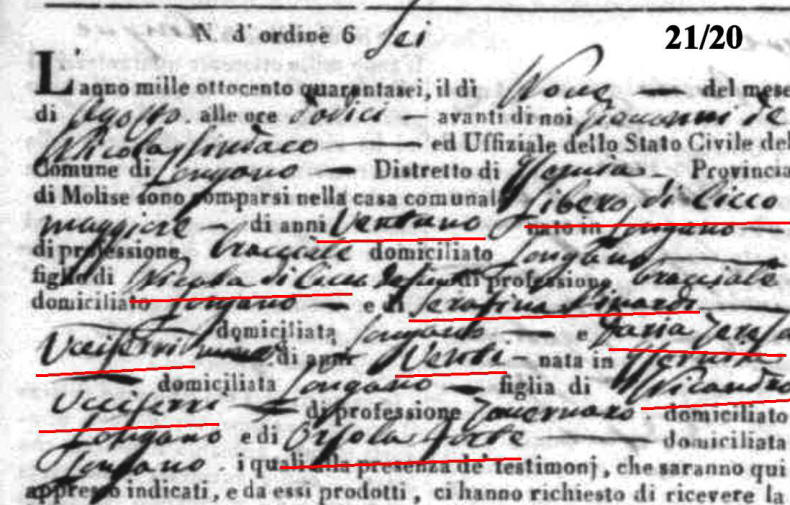 N. d'ordine 6 Sei 21/20
L'anno mille ottocento quarantasei, il di Nove — del mese
di Agosto. alle ore dodici — avanti di noi Giovanni de
Nicola Sindaco — ed Uffiziale dello Stato Civile del
Comune di Longano — Distretto di Isernia — Provincia
di Molise sono comparsi nella casa comunal Libero di Cicco
maggiore — di anni Ventuno nato in Longano —
di professione bracciale domiciliato Longano —
figlio di Nicola di Cicco di professione bracciale
domiciliato Longano — e di Serafina
domiciliata Longano — e Maria Teresa
Ucciferri di anni Venti — nata in Isernia
domiciliata Longano — figlia di Nicandro
Ucciferri — di professione Tavernaro domiciliato
Longano e di Orsola — domiciliata
Longano. i quali alla presenza de' testimonj, che saranno qui
appresso indicati, e da essi prodotti, ci hanno richiesto di ricevere la